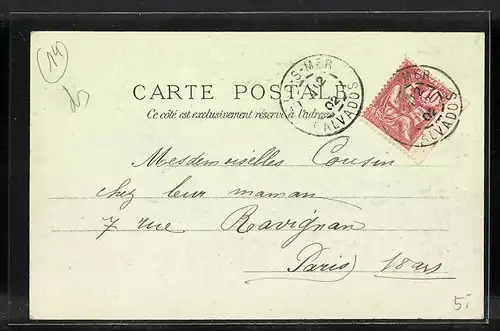 (14)
CARTE POSTALE
Ce côté est exclusivement réservé à l'adresse
S-MER
12
02
CALVADOS
MER
10
02
CALVADOS
Mesdemoiselles Cousin
chez leur maman
7 rue Ravignan
Paris 18 ars
5.-